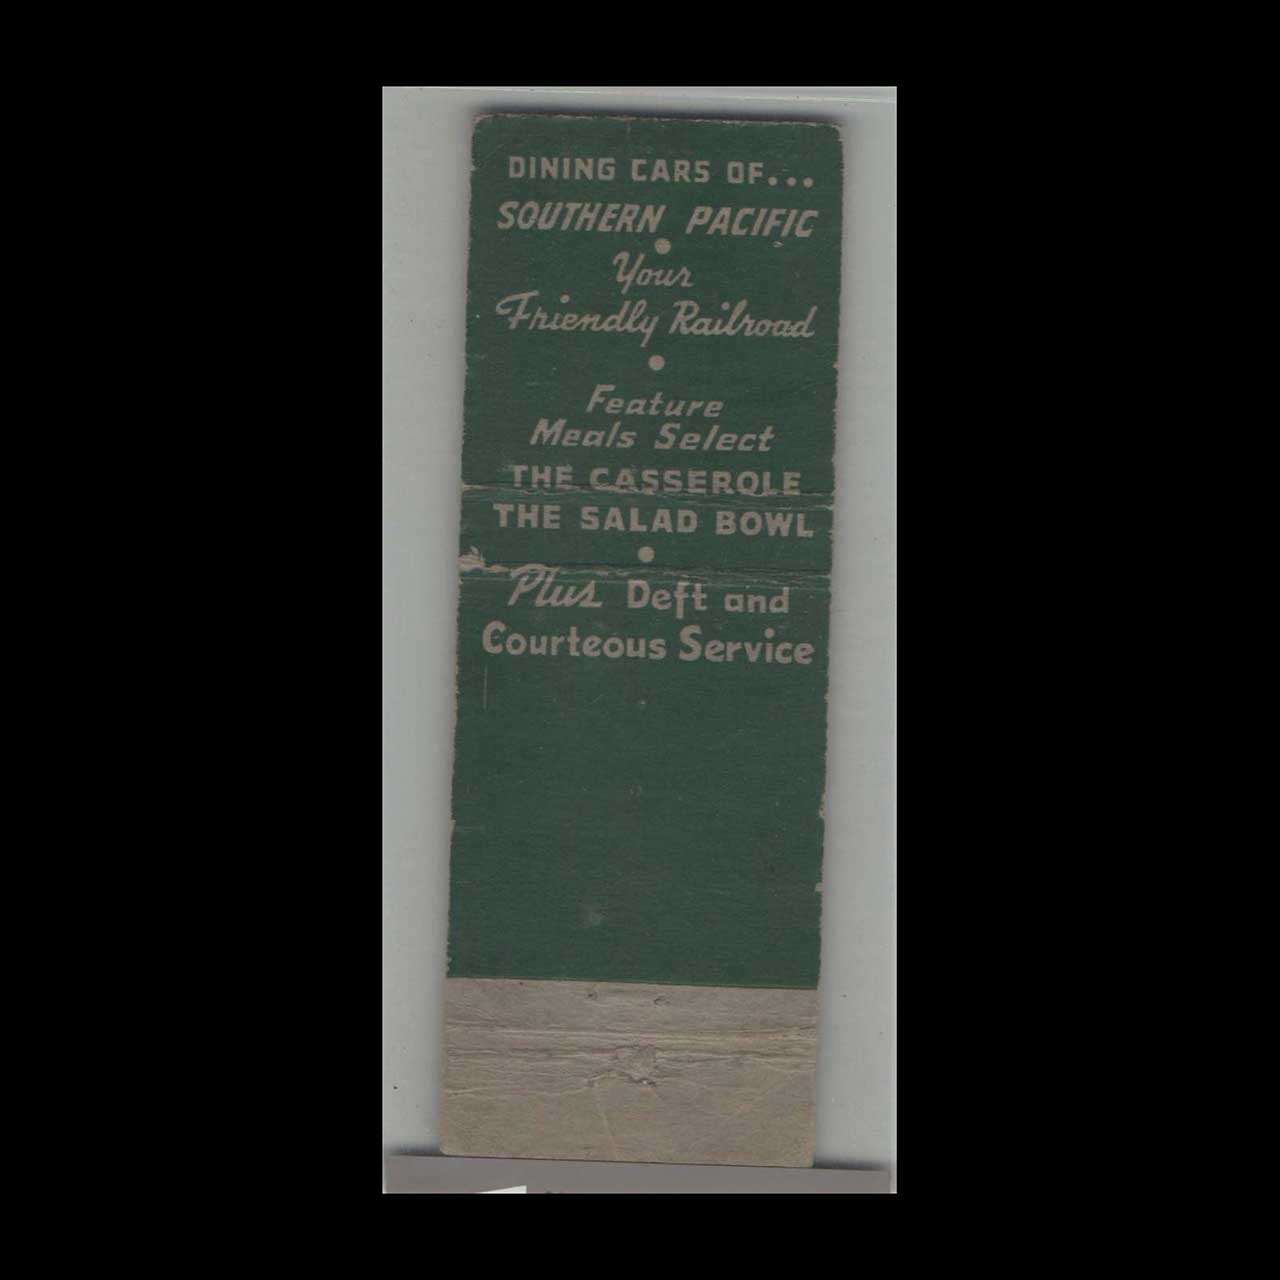 DINING CARS OF...
SOUTHERN PACIFIC
Your
Friendly Railroad
Feature
Meals Select
THE CASSEROLE
THE SALAD BOWL
Plus Deft and
Courteous Service